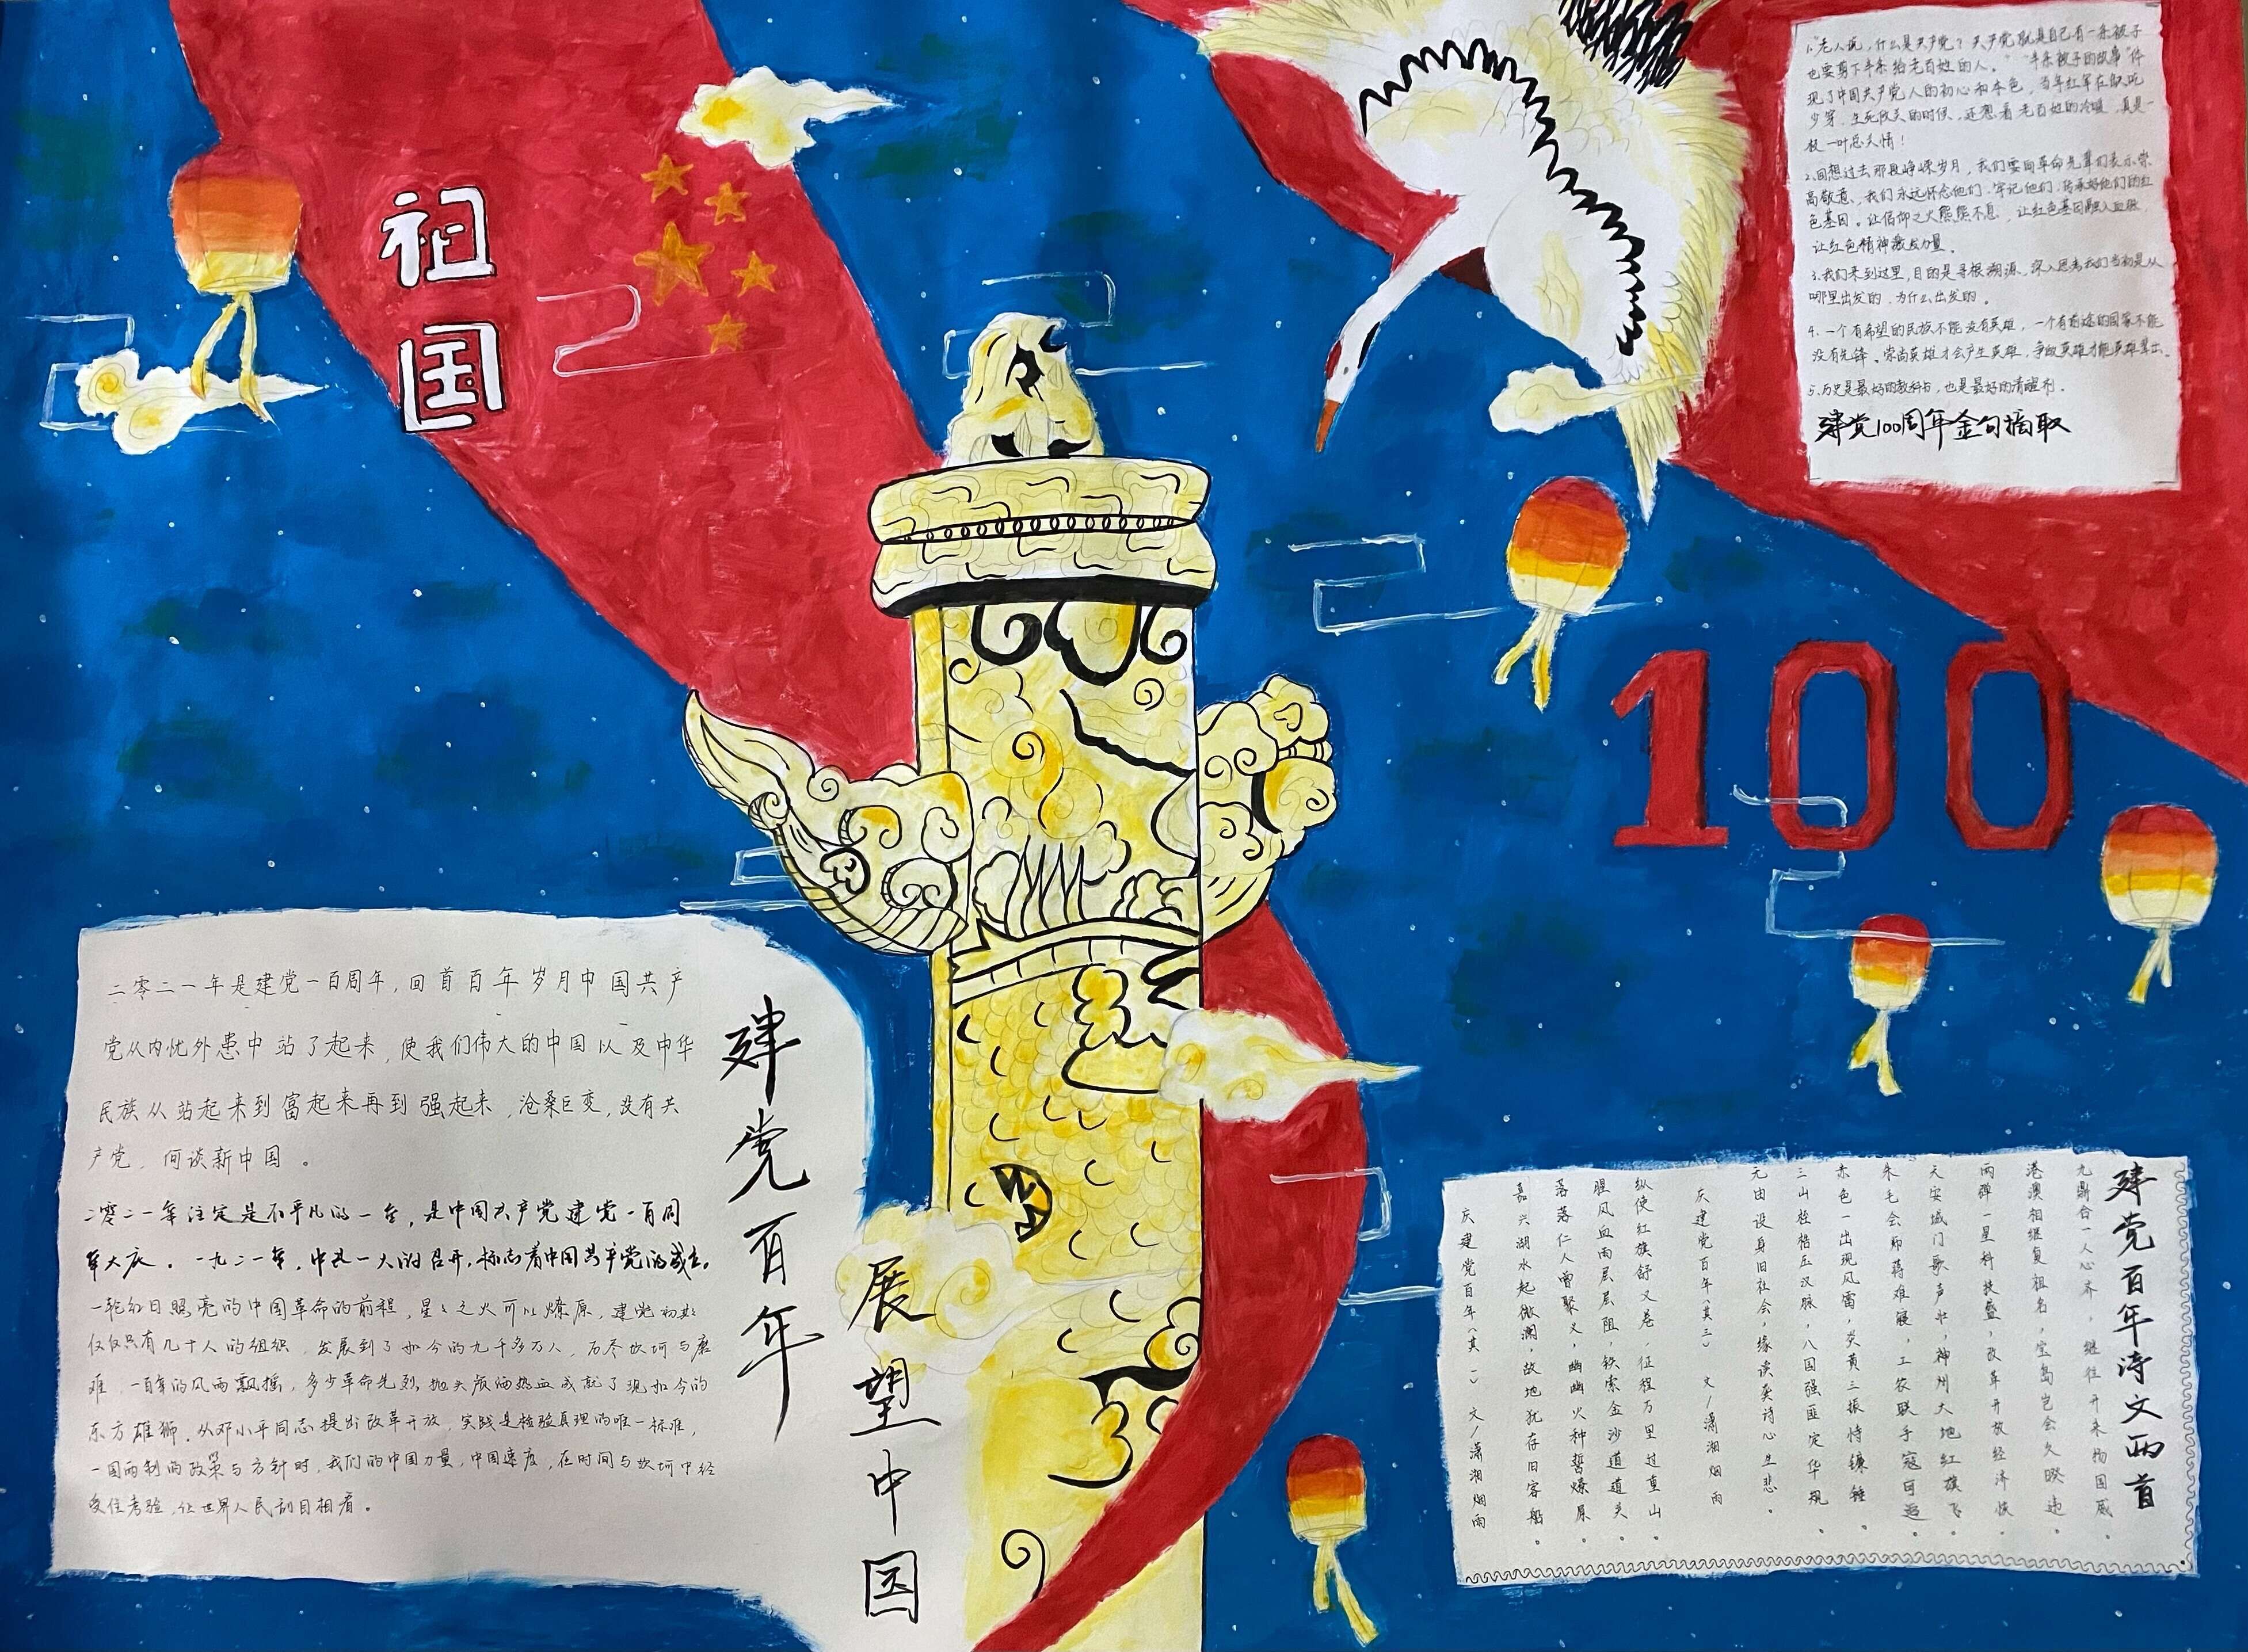 祖国
1."老人说,什么是共产党?共产党就是自己有一条被子
也要剪下半条给老百姓的人。""半条被子的故事"体
现了中国共产党人的初心和本色,当年红军在缺吃
少穿,生死攸关的时候,还想着老百姓的冷暖,真是一
枝一叶总关情!
2.回想过去那段峥嵘岁月,我们要向革命先辈们表示崇
高敬意,我们永远怀念他们,牢记他们,传承好他们的红
色基因。让信仰之火熊熊不息,让红色基因融入血脉,
让红色精神激发力量。
3.我们来到这里,目的是寻根溯源,深入思考我们当初是从
哪里出发的,为什么出发的。
4.一个有希望的民族不能没有英雄,一个有前途的国家不能
没有先锋。崇尚英雄才会产生英雄,争做英雄才能英雄辈出。
5.历史是最好的教科书,也是最好的清醒剂。
建党100周年金句摘取
100
二零二一年是建党一百周年,回首百年岁月中国共产
党从内忧外患中站了起来,使我们伟大的中国以及中华
民族从站起来到富起来再到强起来,沧桑巨变,没有共
产党,何谈新中国。
二零二一年注定是不平凡的一年,是中国共产党建党一百周
年大庆。一九二一年,中共一大的召开,标志着中国共产党的成立。
一轮红日照亮的中国革命的前程,星星之火可以燎原,建党初期
仅仅只有几十人的组织,发展到了如今的九千多万人,历尽坎坷与磨
难,一百年的风雨飘摇,多少革命先烈,抛头颅洒热血成就了现如今的
东方雄狮,从邓小平同志提出改革开放,实践是检验真理的唯一标准,
一国两制的政策与方针时,我们的中国力量,中国速度,在时间与坎坷中经
受住考验,让世界人民刮目相看。
建党百年
展望中国
建党百年诗文两首
九鼎合一人心齐,继往开来物国威。
港澳相继复祖名,宝岛岂会久暌违。
两弹一星科技盛,改革开放经济恢。
天安城门歌声壮,神州大地红旗飞。
朱毛会师蒋难寝,工农联手寇可追。
赤色一出现风雷,炎黄三振恃镰锤。
三山桎梏压汉脉,八国强匪定华规。
无由设身旧社会,缘读卖诗心生悲。
庆建党百年(其三) 文/潇湘烟雨
纵使红旗舒又卷,征程万里过重山。
腥风血雨层层阻,铁索金沙道道关。
落落仁人曾聚义,幽幽火种誓燎原。
嘉兴湖水起微澜,故地犹存旧客船。
庆建党百年(其一) 文/潇湘烟雨